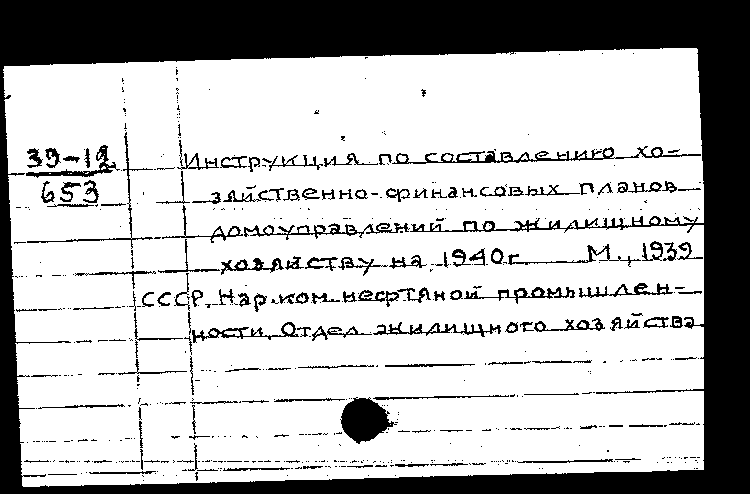 39-12
653
Инструкция по составлению хо-
зяйственно-финансовых планов
домоуправлений по жилищному
хозяйству на 1940г. М., 1939
СССР. Нар.ком.нефтяной промышлен-
ности. Отдел жилищного хозяйства